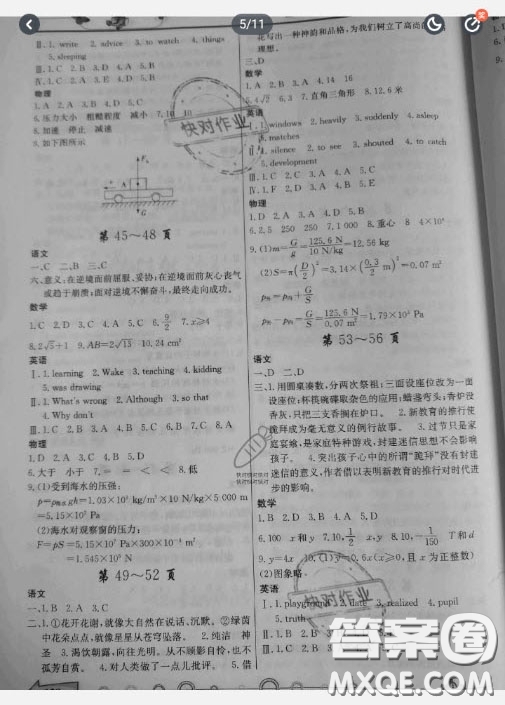 5/11
Ⅱ.1. write 2. advice 3. to watch 4. things
5. sleeping
Ⅳ.1. C 2. A 3. E 4. D 5. B
物理
1. D 2. A 3. B 4. C 5. A
6. 压力大小 粗糙程度 减小 7. 10 10
8. 加速 停止 减速
9. 如下图所示
A
G
第45～48页
语文
一、C 二、B 三、C
六、意义：在逆境面前屈服、妥协；在逆境面前灰心丧气
或趋于崩溃；面对逆境不懈奋斗，最终走向成功。
数学
1. C 2. D 3. C 4. A 5. C 6. 9/2 7. x≥4
8. 2√5+1 9. AB=2√13 10. 24 cm²
英语
Ⅱ.1. learning 2. Wake 3. teaching 4. kidding
5. was drawing
Ⅲ.1. What's wrong 2. Although 3. so that
4. Why don't
物理
1. D 2. D 3. A 4. D 5. A
6. 大于 小于 7. = = < < 8. 低
9. (1)受到海水的压强：
gh=1.03×10³ kg/m³×10 N/kg×5 000 m
=5.15×10⁷ Pa
(2)海水对观察窗的压力：
F=pS=5.15×10⁷ Pa×300×10⁻⁴ m²
=1.545×10⁶ N
第49～52页
语文
一、1. B 2. A 3. C
二、1. ①花开花谢，就像大自然在说话、沉默。②绿茵
中花朵点点，就像星星从苍穹坠落。 2. 纯洁 神
圣 3. 渴饮朝露，向往光明。从不顾影自怜，也不
孤芳自赏。 4. 对人类做了一点儿批评。 5. 借
花写出一种神韵和品格，为我们树立了高尚的
理想。
三、D
数学
1. A 2. B 3. A 4. 14 16
5. 4√2 6. 3 7. 直角三角形 8. 12.6 米
英语
1. windows 2. heavily 3. suddenly 4. asleep
5. matches
Ⅱ.1. silence 2. to see 3. shouted 4. to catch
5. development
Ⅲ.1. F 2. D 3. A 4. B 5. E
物理
1. D 2. A 3. D 4. B 5. D
6. 2.5 250 250 7. 1 000 8. 重心 8 4×10⁴
9. (1)m=G/g=125.6 N/10 N/kg=12.56 kg
(2)S=π(D/2)²=3.14×(0.3/2 m)²=0.07 m²
G/S=125.6 N/0.07 m²=1.79×10³ Pa
第53～56页
语文
一、D 二、D
三、1. 用圆桌凑数，分两次祭祖；三面设座位改为一面
设座位；杯筷碗碟取杂色的应用；蜡盏弯头；香炉没
香灰，只把三支香搁在炉口。 2. 新教育的推行使
跪拜成为毫无意义的例行故事。 3. 过节只是求
庭宴飨，是家庭特种游戏，封建迷信思想不会影响
孩子。 4. 突出孩子心中的所谓“跪拜”没有封建
迷信的意义，作者借以表明新教育的推行对时代进
步的影响。
数学
1. B 2. D 3. D 4. C 5. B
6. 100 x和y 7. 10, 1/2 x, y 8. 10, -1/150 T和d
9. y=4x 10. (1)y=0.6x(x≥0，且x为正整数)
(2)图象略。
英语
Ⅰ.1. playground 3. realized 4. pupil
5. truth
快对作业
快对作业
答案圈
MXQE.COM